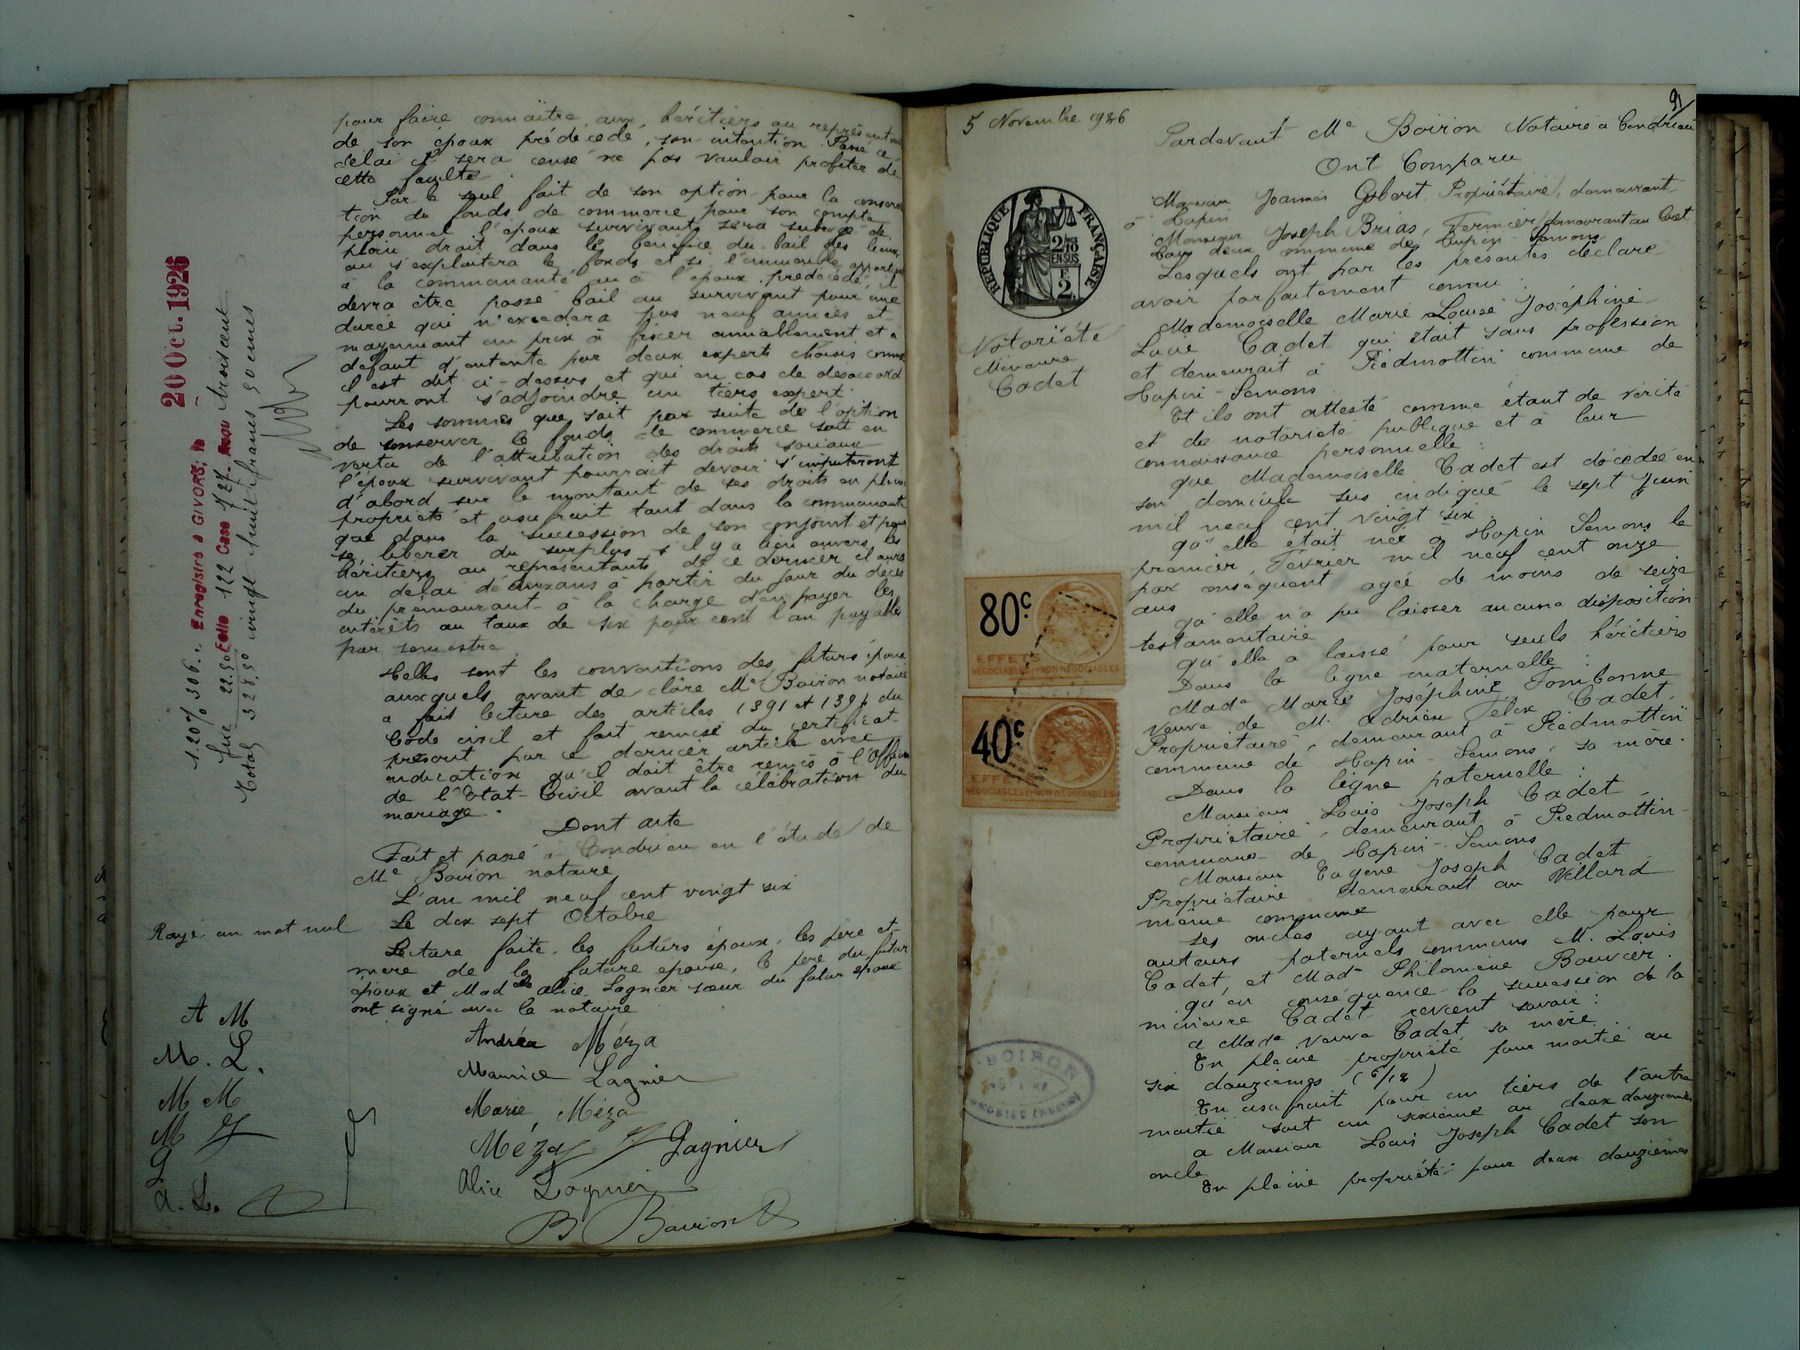 pour faire connaître aux héritiers ou représentants
de son époux prédécédé, son intention. Passé ce
délai il sera censé ne pas vouloir profiter de
cette faculté.
Par le seul fait de son option pour la conserva
tion du fonds de commerce pour son compte
personnel l'époux survivant sera subrogé de
plein droit dans le bénéfice du bail des lieux
où s'exploitera le fonds et si l'immeuble appartient
à la communauté ou à l'époux prédécédé, il
devra être passé bail au survivant pour une
durée qui n'excèdera pas neuf années et
moyennant un prix à fixer amiablement et à
défaut d'entente par deux experts choisis comme
il est dit ci-dessus et qui en cas de désaccord
pourront s'adjoindre un tiers expert.
Les sommes que, soit par suite de l'option
de conserver le fonds de commerce soit en
vertu de l'attribution des droits sociaux
l'époux survivant pourrait devoir s'imputeront
d'abord sur le montant de ses droits en pleine
propriété et usufruit tant dans la communauté
que dans la succession de son conjoint et pour
se libérer du surplus s'il y a lieu envers les
héritiers ou représentants de ce dernier il aura
un délai de deux ans à partir du jour du décès
du prémourant à la charge d'en payer les
intérêts au taux de six pour cent l'an payables
par semestre
Telles sont les conventions des futurs époux
auxquels avant de clore Me Boiron notaire
a fait lecture des articles 1391 et 1394 du
Code civil et fait remise du certificat
prescrit par ce dernier article avec
indication qu'il doit être remis à l'Officier
de l'Etat-Civil avant la célébration du
mariage.
Dont acte
Fait et passé à Condrieu en l'étude de
Me Boiron notaire
L'an mil neuf cent vingt six
Le dix sept Octobre
Lecture faite les futurs époux, les père et
mère de la future épouse, le père du futur
époux et Madelle Alice Lagnier sœur du futur époux
ont signé avec le notaire
Andréa Méza
Maurice Lagnier
Marie Méza
Méza Lagnier
Alice Lagnier
B Boiron
20 Oct. 1926
Enregistré à GIVORS, le
Folio 122 Case 727
1.20% 306..
22.50
Total 328,50
Rayé un mot nul
A M
M. L.
M M
M
L
A. L.
91
5 Novembre 1926
RÉPUBLIQUE FRANÇAISE
2/10
EN SUS
F.
2.
Notoriété
Mineure
Cadet
80c
EFFETS
NÉGOCIABLES ET NON NÉGOCIABLES
40c
EFFETS
NÉGOCIABLES ET NON NÉGOCIABLES
BOIRON
Pardevant Me Boiron Notaire à Condrieu
Ont Comparu
Monsieur Joannès Gubert, Propriétaire, demeurant
à Tupin
Monsieur Joseph Brias, Fermier, demeurant au
tous deux commune de Tupin-Semons
Lesquels ont par les présentes déclaré
avoir parfaitement connu
Mademoiselle Marie Louise Joséphine
Lucie Cadet qui était sans profession
et demeurait à Piedmottin commune de
Tupin-Semons
Et ils ont attesté comme étant de vérité
et de notoriété publique et à leur
connaissance personnelle:
que Mademoiselle Cadet est décédée en
son domicile sus indiqué le sept Juin
mil neuf cent vingt six
qu'elle était née à Tupin Semons le
premier Février mil neuf cent onze
par conséquent agée de moins de seize
ans
qu'elle n'a pu laisser aucune disposition
testamentaire
qu'elle a laissé pour seuls héritiers
Dans la ligne maternelle:
Made Marie Joséphine Tombonne
Veuve de M. Adrien Félix Cadet,
Propriétaire, demeurant à Piedmottin
commune de Tupin-Semons, sa mère.
Dans la ligne paternelle:
Monsieur Louis Joseph Cadet
Propriétaire, demeurant à Piedmottin
commune de Tupin-Semons
Monsieur Eugène Joseph Cadet
Propriétaire demeurant au Villard
même commune
Ses oncles ayant avec elle pour
auteurs paternels communs M. Louis
Cadet, et Made Philomène Bouvier.
qu'en conséquence la succession de la
mineure Cadet revient savoir:
à Made Veuve Cadet sa mère
En pleine propriété pour moitié ou
six douzièmes (6/12)
En usufruit pour un tiers de l'autre
moitié soit un sixième ou deux douzièmes
a Monsieur Louis Joseph Cadet son
oncle
En pleine propriété pour deux douzièmes